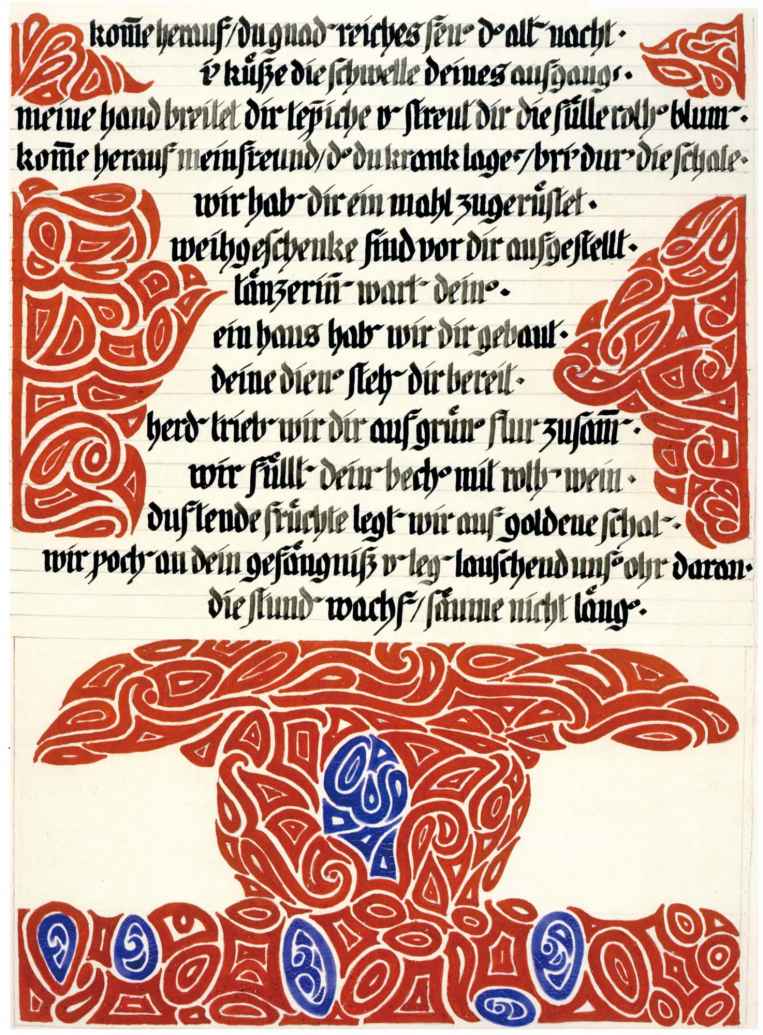 kom̄e herauf/du gnad⁻reiches feu˚ d˚ alt⁻ nacht·
i⁊ küße die schwelle deines aufgangs·
meine hand breitet dir tep̄iche v⁻ streut dir die fülle roth˚ blum⁻·
kom̄e herauf mein freund/d˚ du krank lagest/bri⁊ dur⁊ die schale·
wir hab⁻ dir ein mahl zugerüstet·
weihgeschenke sind vor dir aufgestellt·
tänzerin̄⁻ wart⁻ dein˚·
ein haus hab⁻ wir dir gebaut·
deine dien˚ steh⁻ dir bereit·
herd⁻ trieb⁻ wir dir auf grün˚ flur zusam̄⁻·
wir füllt⁻ dein⁻ bech˚ mit roth⁻ wein·
duftende früchte legt⁻ wir auf goldene schal⁻·
wir poch⁻ an dein gefängniß v⁻ leg⁻ lauschend uns˚ ohr daran·
die stund⁻ wachs⁻/säume nicht läng˚·